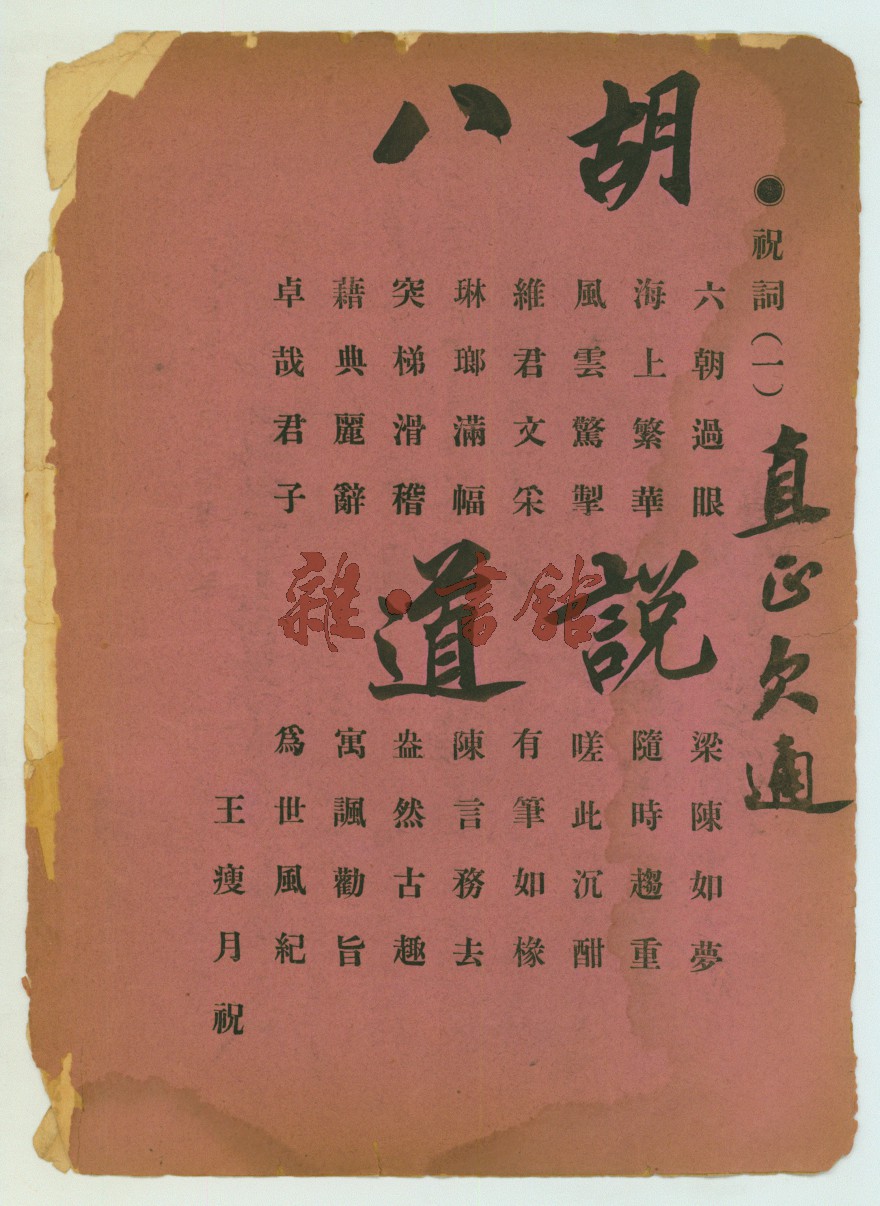 祝詞(一)
直正欠通
胡說
八道
六朝過眼 梁陳如夢
海上繁華 隨時趨重
風雲驚掣 嗟此沉酣
維君文采 有筆如椽
琳瑯滿幅 陳言務去
突梯滑稽 盎然古趣
藉典麗辭 寓諷勸旨
卓哉君子 爲世風紀
王瘦月祝
雜·書館